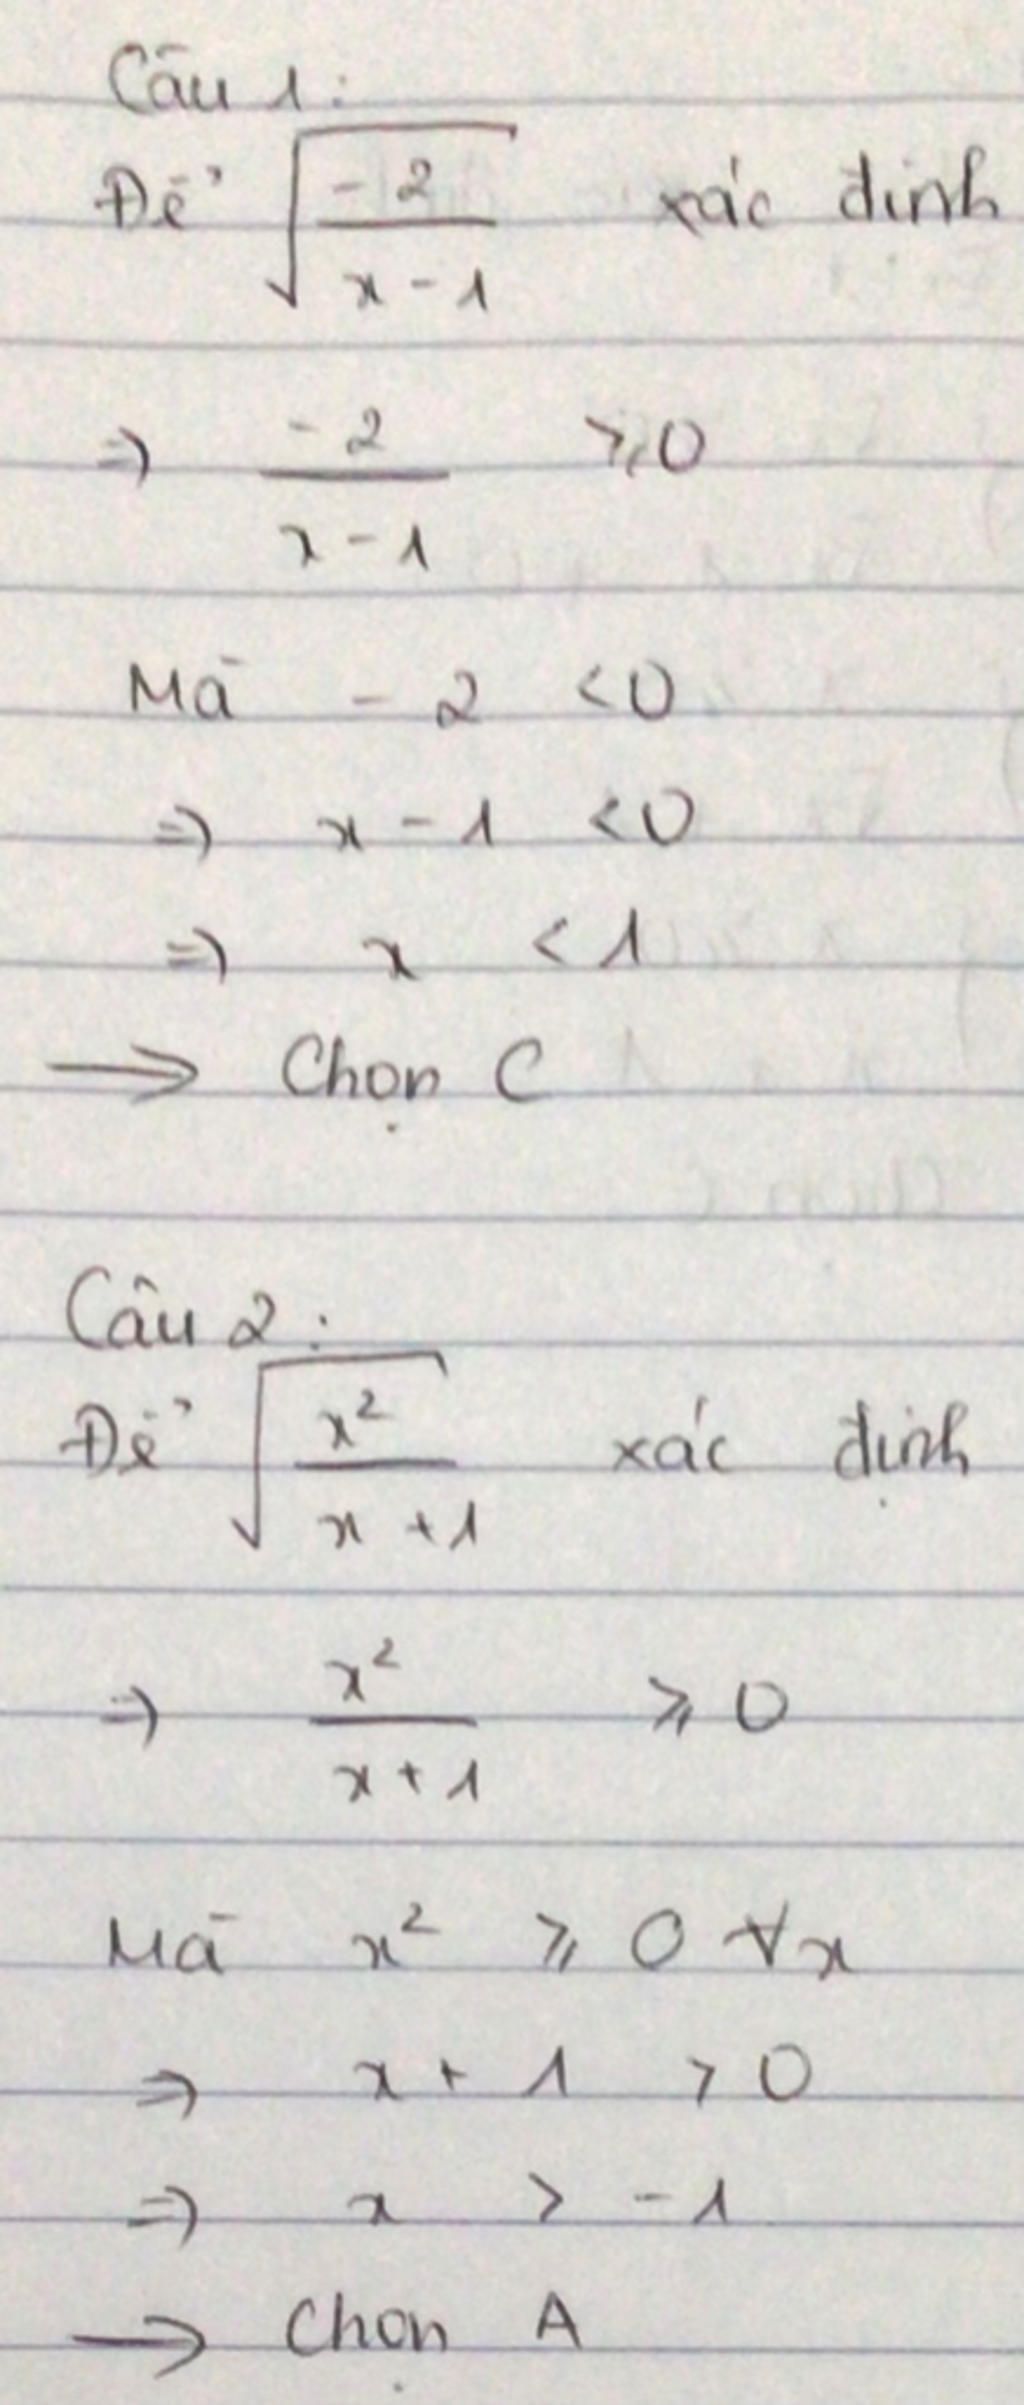 Câu 1:
Để √(-2/(x-1)) xác định
⇒ -2/(x-1) ⩾ 0
Mà -2 < 0
⇒ x-1 < 0
⇒ x < 1
→ Chọn C
Câu 2:
Để √(x²/(x+1)) xác định
⇒ x²/(x+1) ⩾ 0
Mà x² ⩾ 0 ∀x
⇒ x+1 > 0
⇒ x > -1
→ Chọn A